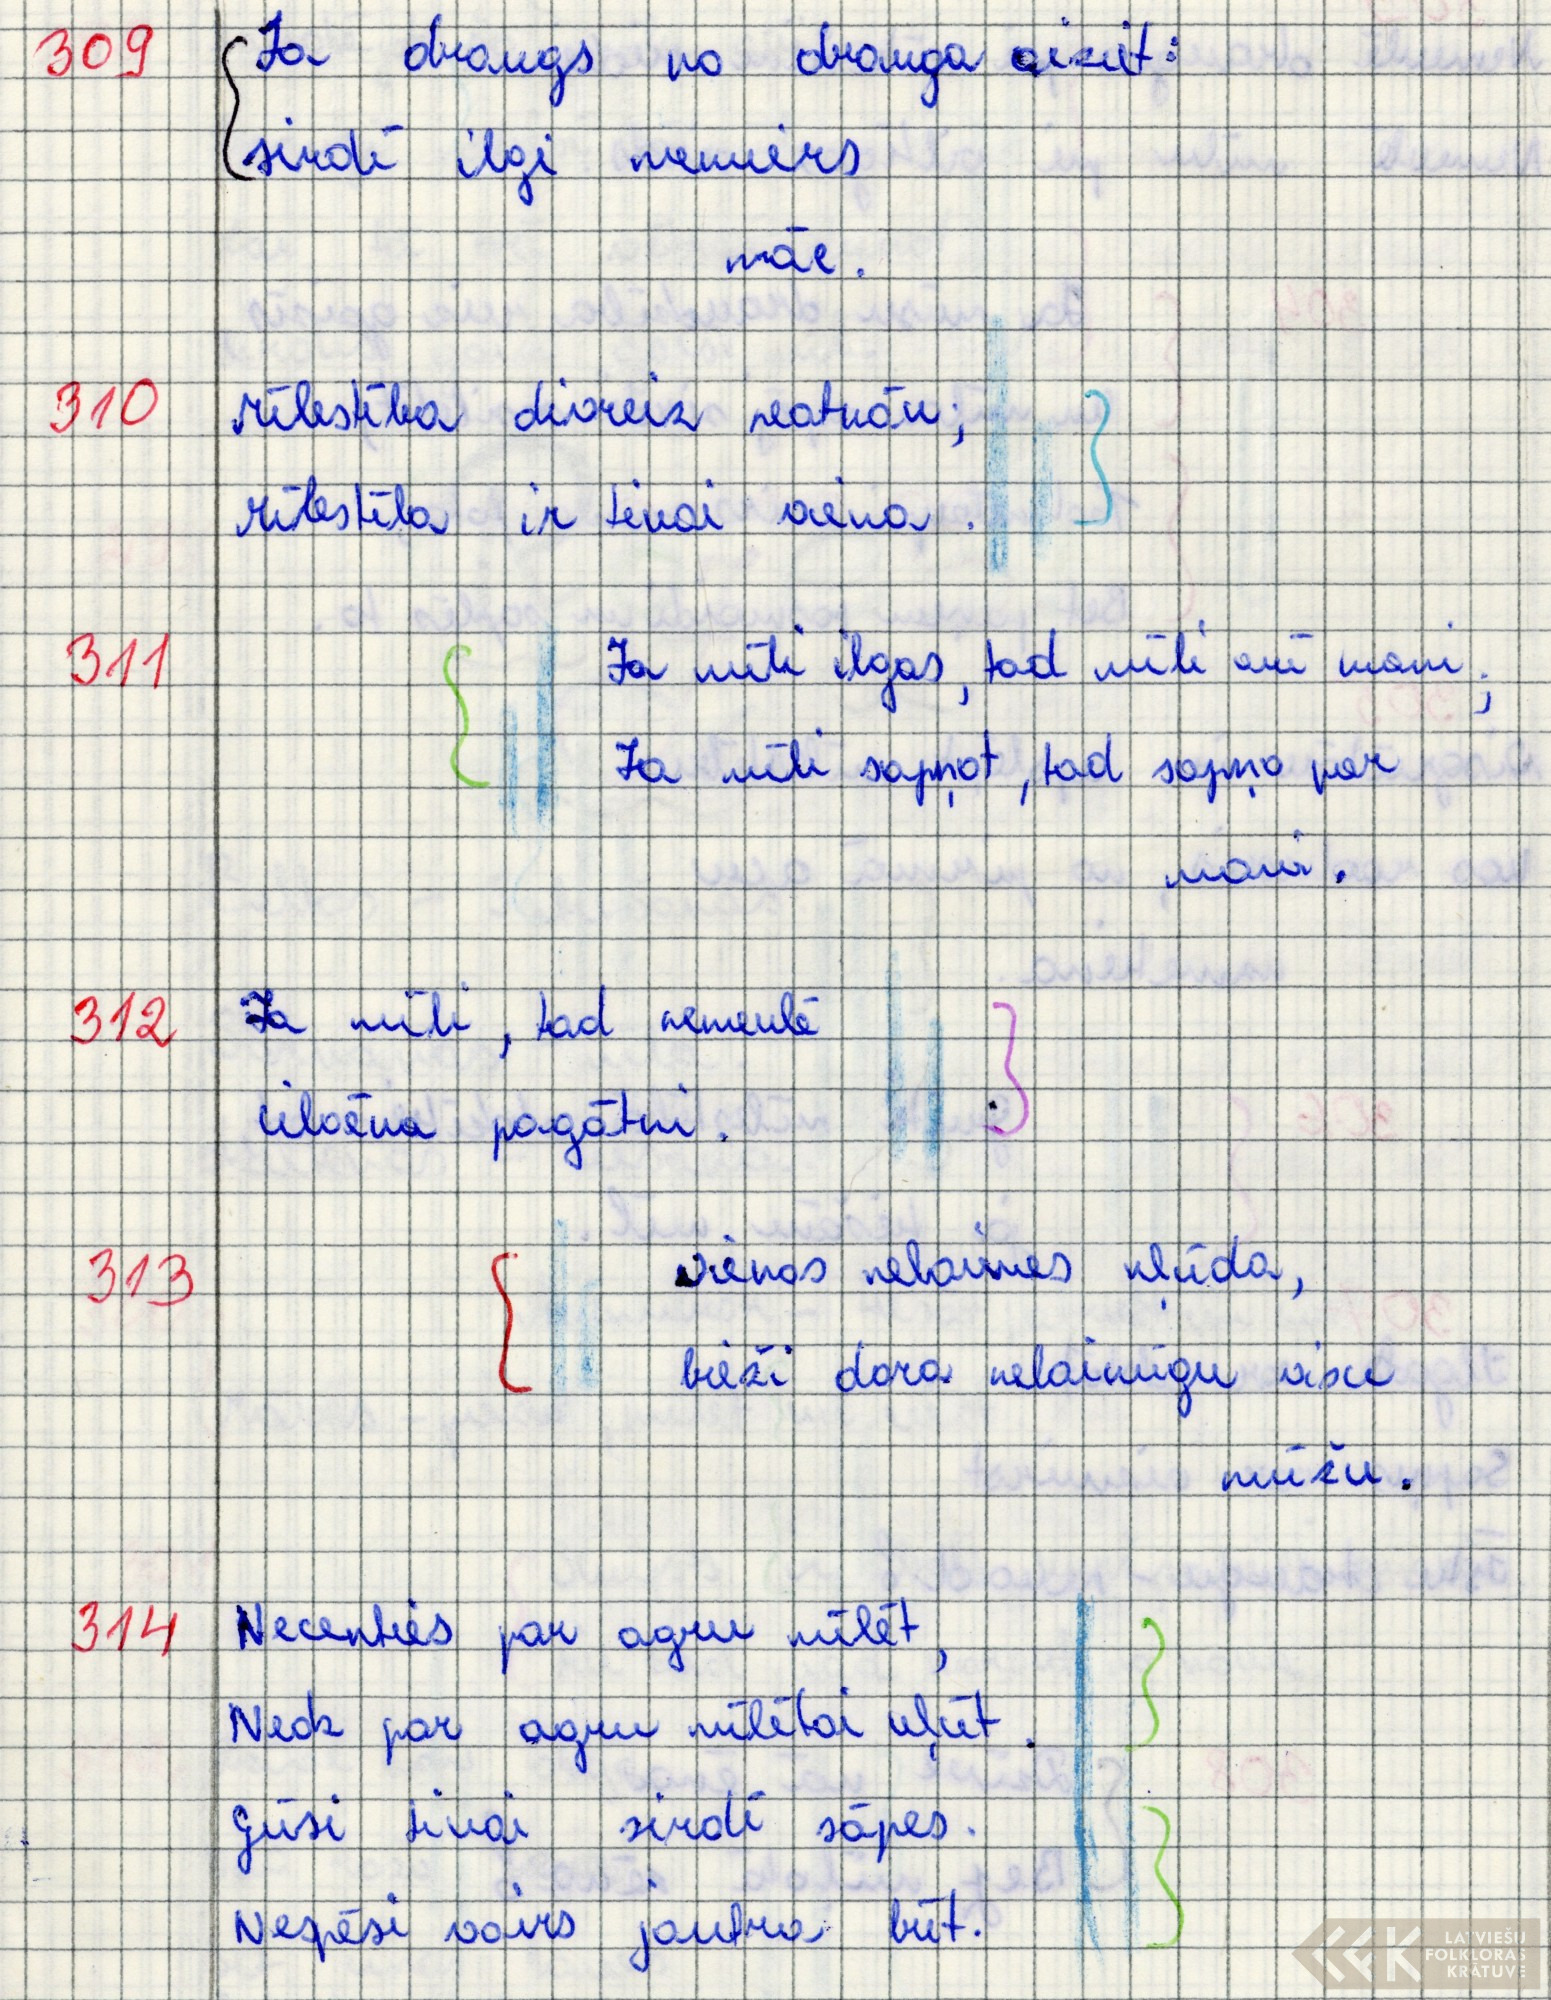 309 Ja draugs no drauga aiziet:
sirdī ilgi nemiers
māc.
310 Mīlestība divreiz neatnāk;
Mīlestība ir tikai viena.
311 Ja mīli ilgas, tad mīli arī mani;
Ja mīli sapņot, tad sapņo par
mani.
312 Ja mīli, tad nemeklē
cilvēka pagātni.
313 Vienas nelaimes kļūda,
bieži dara nelaimīgu visu
mūžu.
314 Necenties par agru mīlēt,
Nedz par agru mīlētai kļūt.
Gūsi tikai sirdī sāpes.
Nespēsi vairs jautra būt.
LATVIEŠU
FOLKLORAS
KRĀTUVE